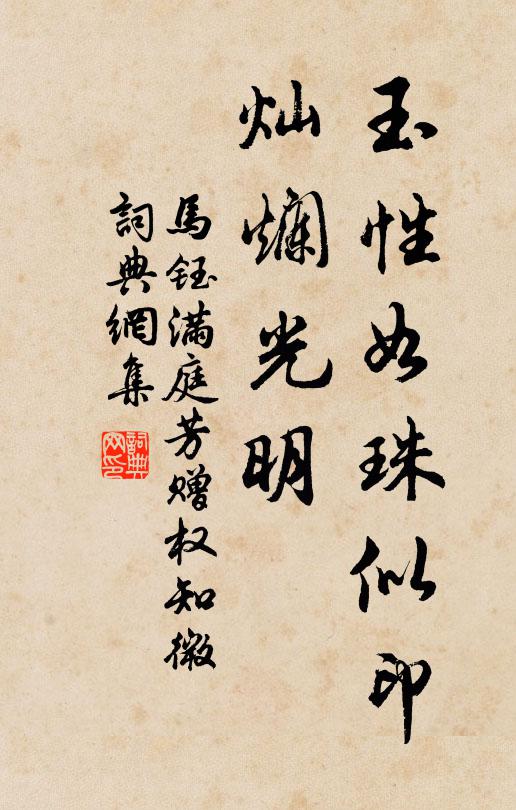 玉性如珠似印
灿爛光明
馬鈺满庭芳赠权知微
詞典網集
詞典网印